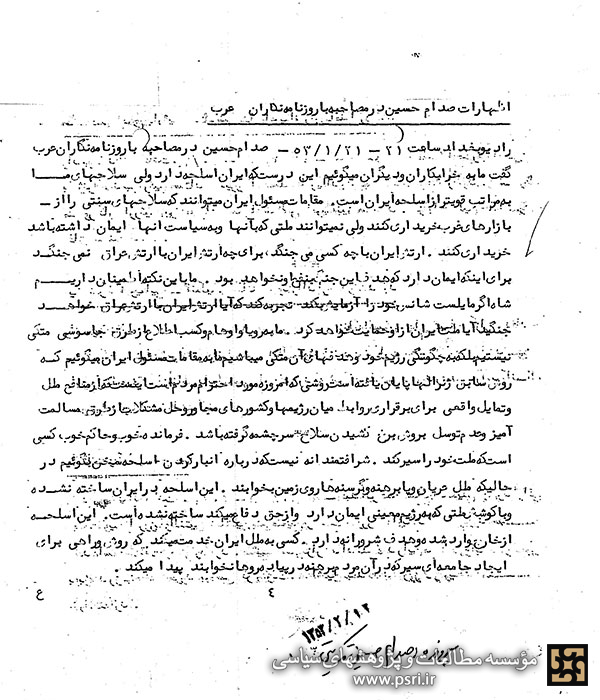 اظهارات صدام حسین در مصاحبه با روزنامه نگاران عرب
رادیو بغداد ساعت ۲۱ – ۵۲/۱/۲۱ – صدام حسین در مصاحبه با روزنامه نگاران عرب
گفت ما به خرابکاران و دیگران میگوئیم این درست که ایران اسلحه دارد ولی سلاحهای ما
به مراتب قویتر از اسلحه ایران است . مقامات مسئول ایران میتوانند که سلاحهای سنتی را از –
بازارهای غرب خریداری کنند ولی نمیتوانند ملتی که بآنها و به سیاست آنها ایمان داشته باشد
خریداری کنند . ارتش ایران با چه کسی می جنگد برای چه ارتش ایران با ارتش عراق نمی جنگد
برای اینکه ایمان دارد که هدف این جنگ نخواهد بود . ما باین نکته اطمینان داریم
شاه اگر مایلست شانس خود را آزمایش بکند تجربه کند که آیا ارتش ایران با ارتش عراق خواهد
جنگید آیا ملت ایران از او حمایت خواهد کرد . ما به رویا و اوهام و کسب اطلاع از طرق جاسوسی متکی
نیستیم بلکه به چگونگی رژیم خود و هدفهای آن متکی میباشیم ما به مقامات مسئول ایران میگوئیم که
روش سابق ژنرالها پایان یافته است روشی که امروزه مورد احترام مردم است که از منافع ملل
و تمایل واقعی برای برقراری روابط میان رژیمها و کشورهای مجاور و حل مشکلات از طریق مسالمت
آمیز و عدم توسل بروش برن کشیدن سلاح سرچشمه گرفته باشد . فرمانده خوب و حاکم خوب کسی
است که ملت خود را سیر کند . شرافتمندانه نیست که درباره انبار کردن اسلحه سخن بگوئیم در
حالیکه ملل عریان و پا برهنه و گرسنه ها روی زمین بخوابند . این اسلحه در ایران ساخته نشده
و با کوشش ملتی که به رژیم معینی ایمان دارد و از حق دفاع میکند ساخته نشده است . این اسلحه
از خارج وارد شده و هدف شرورانه دارد . کسی به ملل ایران خدمت میکند که روش و راهی برای
ایجاد جامعه ای سیر که در آن مردم برهنه در پیاده روها نخوابند پیدا میکند .
٤ ع
۱۳۵۲/۲/۱۲
صدام حسین تکریتی
مؤسسه مطالعات و پژوهشهای سیاسی
www.psri.ir